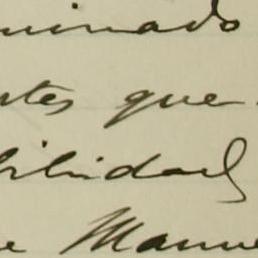 minado
tes que
bilidad
e Manue